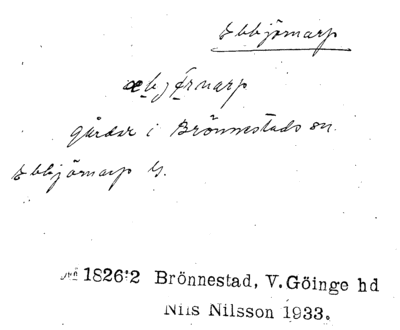 Ebbjörnarp
æbjörnarp
gårdar i Brönnestads sn.
Ebbjörnarp
1826:2 Brönnestad, V. Göinge hd
Nils Nilsson 1933.